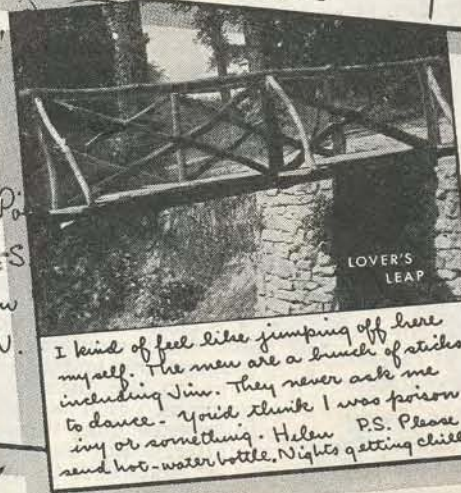 LOVER'S
LEAP
I kind of feel like jumping off here
myself. The men are a bunch of sticks
including Jim. They never ask me
to dance - You'd think I was poison
ivy or something. Helen P.S. Please
send hot-water bottle. Nights getting chill